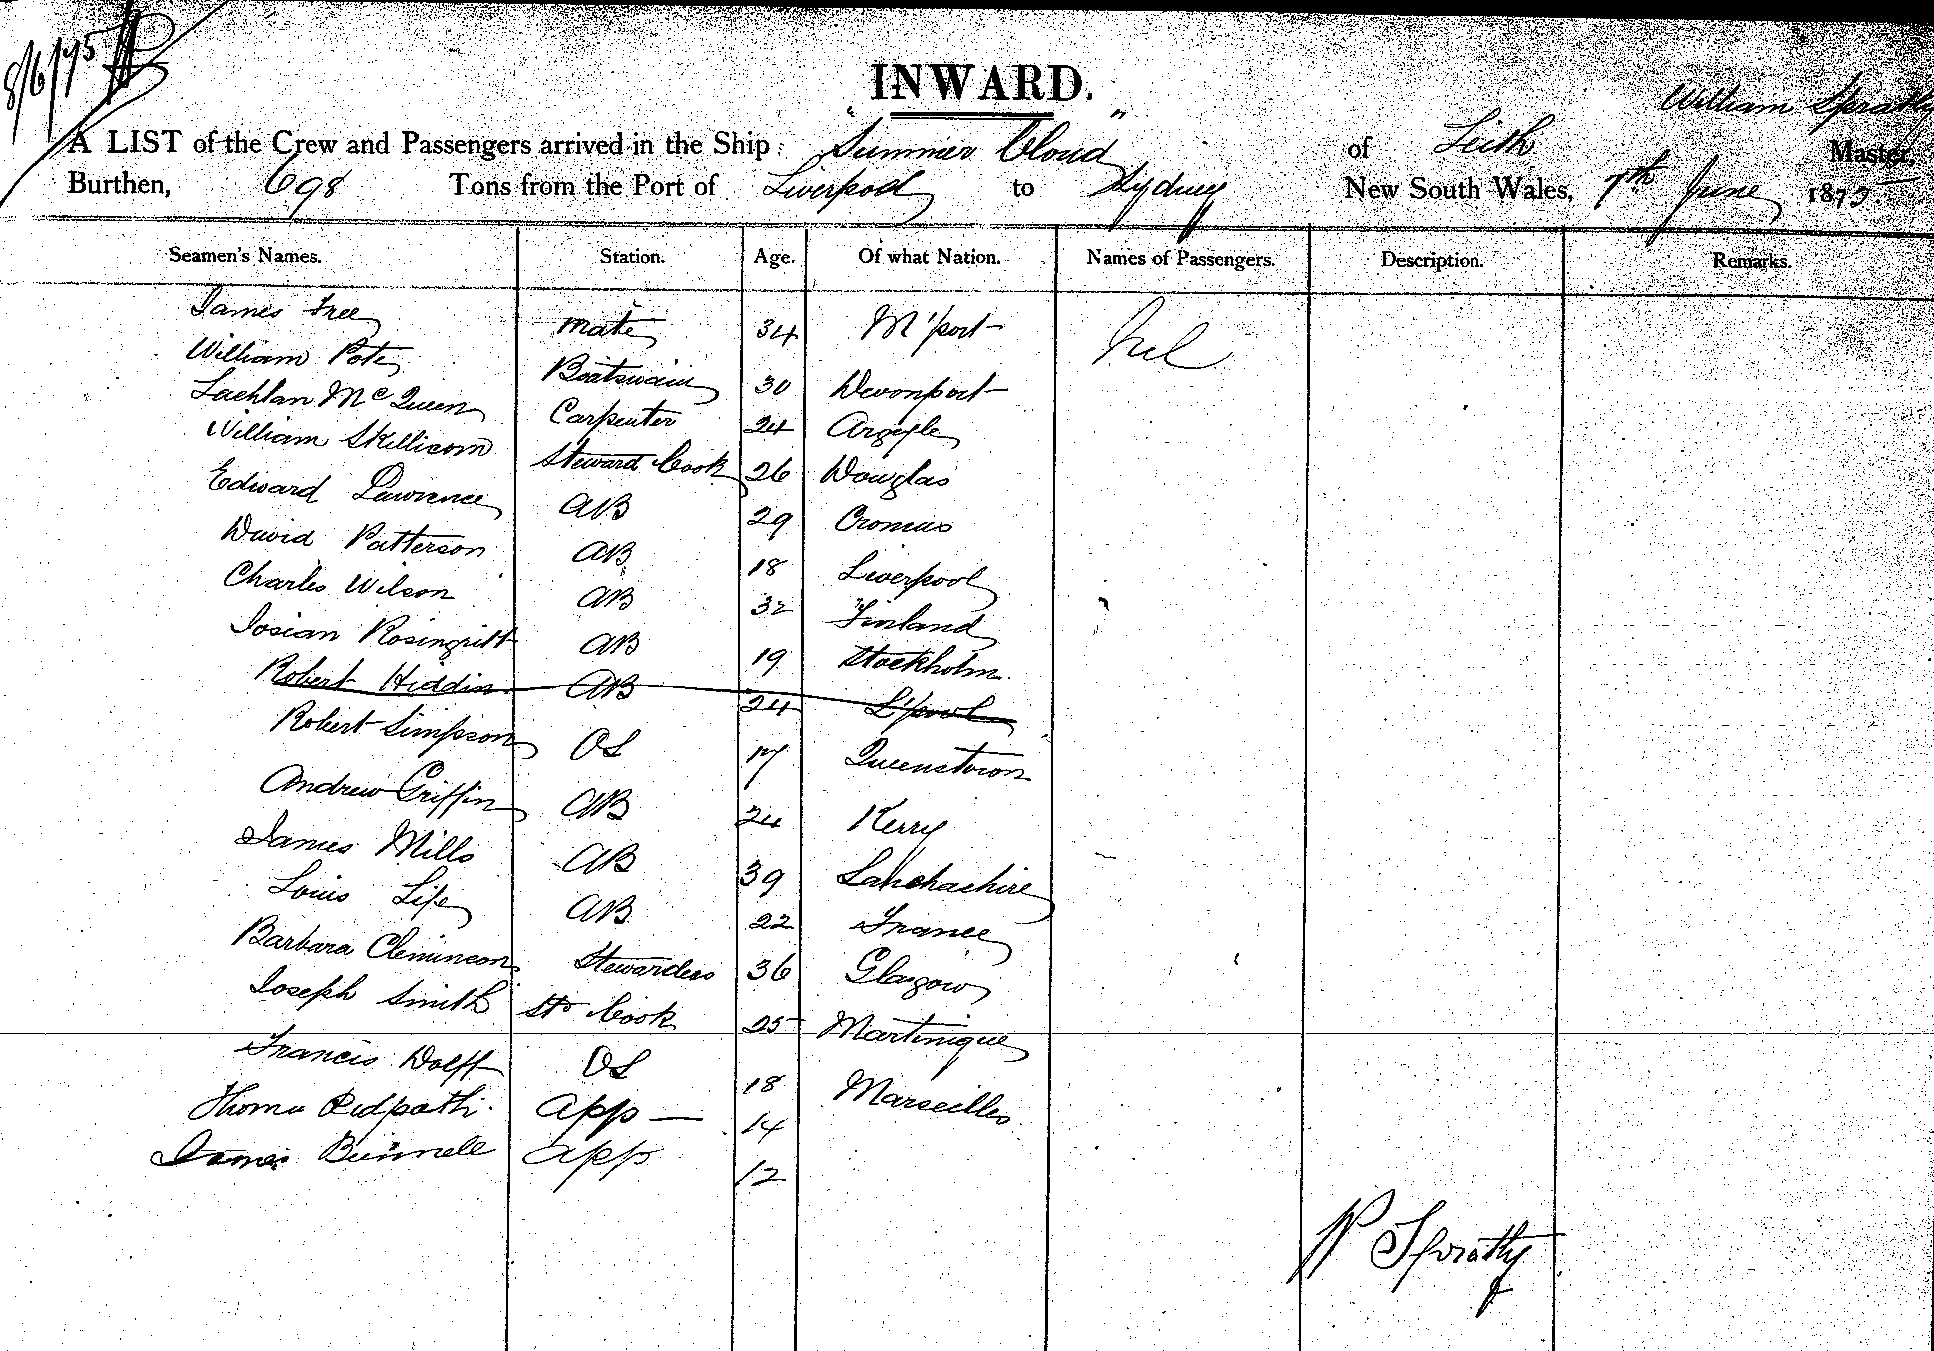 8/6/75
INWARD.
William Spratly
A LIST of the Crew and Passengers arrived in the Ship "Summer Cloud" of Leith Master,
Burthen, 698 Tons from the Port of Liverpool to Sydney New South Wales, 7th June 1875
Seamen's Names. Station. Age. Of what Nation. Names of Passengers. Description. Remarks.
James Free mate 34 M'port Nil
William Pote Boatswain 30 Devonport
Lachlan McQueen Carpenter 24 Argyle
William Skillicorn Steward Cook 26 Douglas
Edward Lawrence AB 29
David Patterson AB 18 Liverpool
Charles Wilson AB 32 Finland
Josian AB 19 Stockholm
Robert Hiddin AB 24 L'pool
Robert Simpson OS 17 Queenstown
Andrew Griffin AB 24 Kerry
James Mills AB 39 Lanchashire
Louis AB 22 France
Barbara Stewardess 36 Glasgow
Joseph Smith Cook 25 Martinique
Francis Wolff OS 18 Marseilles
Thoma Ridpath App — 14
James Bunnell App 12
W Spratly